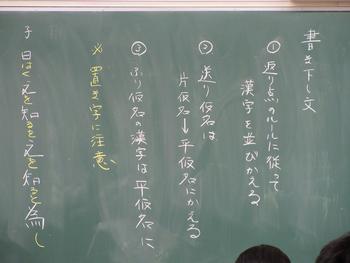 書き下し文
① 返り点のルールに従って
漢字を並びかえる
② 送り仮名は
片仮名→平仮名にかえる
③ ふり仮名の漢字は平仮名に
※ 置き字に注意
子曰はく之を知るを之を知ると為し